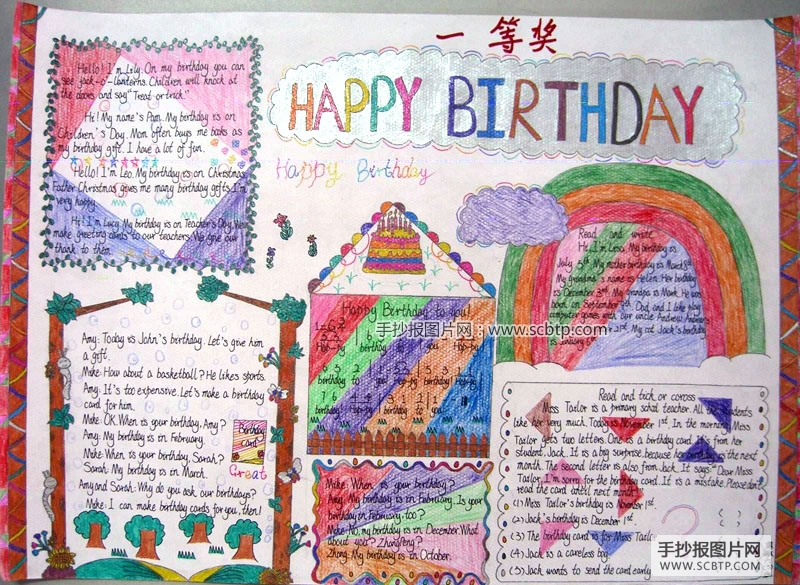 一等奖
HAPPY BIRTHDAY
Happy Birthday
Hello! I'm Lily. On my birthday you can
see jack-o-lanterns. Children will knock at
the doors and say "Treat or trick."
Hi! My name's Pam. My birthday is on
Children's Day. Mom often buys me books as
my birthday gift. I have a lot of fun.
Hello! I'm Leo. My birthday is on Christmas.
Father Christmas gives me many birthday gifts. I'm
very happy.
Hi! I'm Lucy. My birthday is on Teacher's Day. We
make greeting cards to our teachers. We give our
thank to them.
Amy: Today is John's birthday. Let's give him
a gift.
Mike: How about a basketball? He likes sports.
Amy: It's too expensive. Let's make a birthday
card for him.
Mike: OK. When is your birthday, Amy?
Amy: My birthday is in February.
Mike: When is your birthday, Sarah?
Sarah: My birthday is in March.
Amy and Sarah: Why do you ask our birthdays?
Mike: I can make birthday cards for you, then!
Birthday
card
Great
Happy Birthday to you!
birthday to you! Hap-py birthday
birthday to you
手抄报图片网：www.scbtp.com
Mike: When is your birthday?
Amy: My birthday is in February. Is your
birthday in February, too?
Mike: No, my birthday is in December. What
about you? Zhongfeng?
Zhong: My birthday is in October.
Read and write
Hi, I'm Lesa. My birthday is
July 3th. My mother birthday is March
My Grandma's name is Helen. Her birthday
is December 3rd. My Grandpa is Mark. He was
born on September. Dad and I like play
computer games with our uncle Andrew. Andrew's
21st. My cat Jack's birthday
is January
Read and tick or coross
Miss Tailor is a primary schol teacher. All the students
like her very much. Today is November 1st. In the morning, Miss
Tailor gets two letters. One is a birthday card. It's from her
student, Jack. It is a big surprise, because her birthday is the next
month. The second letter is also from Jack. It says: "Dear Miss
Tailor, I'm sorry for the birthday card. It is a mistake. Please don't
read the card until next month."
(1) Miss Tailor's birthday is November 1st.
(2) Jack's birthday is December 1st. ( )
(3) The birthday card is for Miss Tailor.
(4) Jack is a careless boy.
(5) Jack wants to send the card early
手抄报图片网
WWW.SCBTP.COM